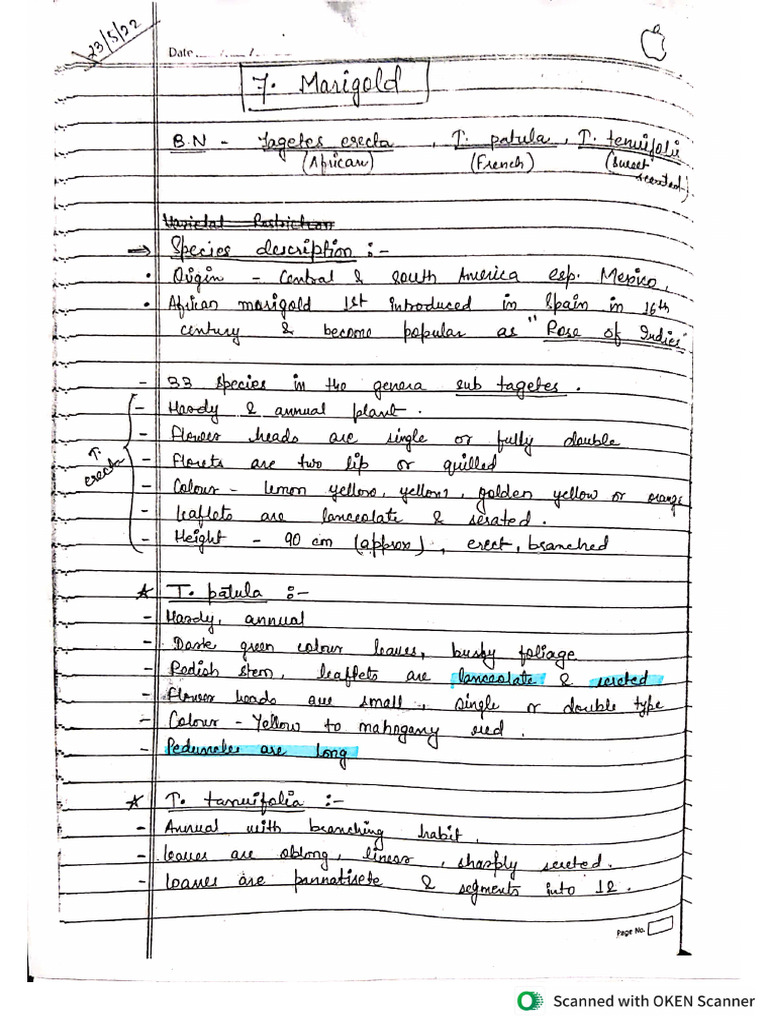 23/5/22
Date ..../..../......
7. Marigold
B.N - Tagetes erecta, T. patula, T. tenuifoli
(African) (French) (sweet scented)
Varietal Restriction
→ Species description :-
• Origin - Central & South America esp. Mexico,
• African marigold 1st introduced in Spain in 16th
century & become popular as "Rose of Indies"
- 33 species in the genera sub tagetes.
T. erecta
- Hardy & annual plant.
- Flower heads are single or fully double
- Florets are two lip or quilled
- Colour - lemon yellow, yellow, golden yellow or orange
- leaflets are lanceolate & serated.
- Height - 90 cm (approx), erect, branched
☆ T. patula :-
- Hardy, annual
- Dark green colour leaves, bushy foliage
- Redish stem, leaflets are lanceolate & sereted
- Flower heads are small, single or double type
- Colour - Yellow to mahogany red.
- Peduncles are long
☆ T. tanuifolia :-
- Annual with branching habit,
- leaves are oblong, linear, sharply sereted.
- leaves are pinnatisete & segments into 12.
Page No.
Scanned with OKEN Scanner